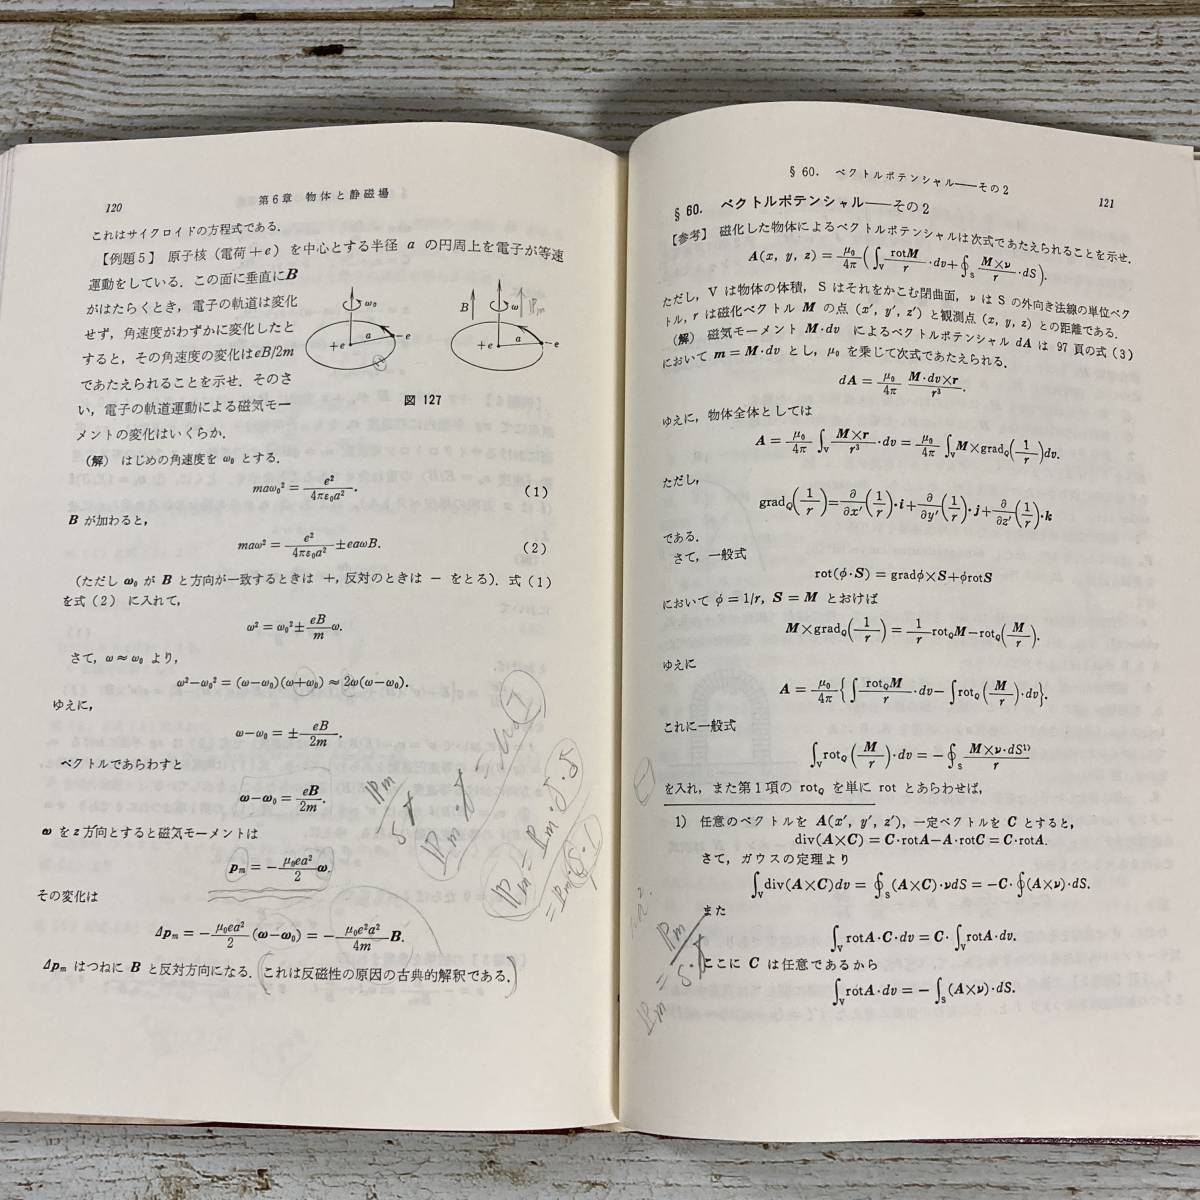 120 第6章 物体と静磁場
これはサイクロイドの方程式である.
【例題5】 原子核(電荷+e)を中心とする半径 a の円周上を電子が等速
運動をしている. この面に垂直にB
がはたらくとき, 電子の軌道は変化
せず, 角速度がわずかに変化したと
すると, その角速度の変化はeB/2m
であたえられることを示せ. そのさ
い, 電子の軌道運動による磁気モー
メントの変化はいくらか.
ω₀
+e
a
−e
B
ω
IPm
+e
a
−e
図 127
(解) はじめの角速度を ω₀ とする.
maω₀² = e²/4πε₀a². (1)
B が加わると,
maω² = e²/4πε₀a² ± eaωB. (2)
(ただし ω₀ が B と方向が一致するときは +, 反対のときは − をとる). 式(1)
を式(2) に入れて,
ω² = ω₀² ± eB/m ω.
さて, ω≈ω₀ より,
ω²−ω₀² = (ω−ω₀)(ω+ω₀) ≈ 2ω(ω−ω₀).
ゆえに,
ω−ω₀ = ± eB/2m.
ベクトルであらわすと
ω−ω₀ = eB/2m.
ω を z 方向とすると磁気モーメントは
pm = − μ₀ea²/2 ω.
その変化は
Δpm = − μ₀ea²/2 (ω−ω₀) = − μ₀e²a²/4m B.
Δpm はつねに B と反対方向になる. (これは反磁性の原因の古典的解釈である.)
§60. ベクトルポテンシャル——その2 121
§60. ベクトルポテンシャル——その2
【参考】 磁化した物体によるベクトルポテンシャルは次式であたえられることを示せ.
A(x, y, z) = μ₀/4π (∫V rotM/r ・dv+∮S M×ν/r ・dS).
ただし, V は物体の体積, S はそれをかこむ閉曲面, ν は S の外向き法線の単位ベク
トル, r は磁化ベクトル M の点 (x′, y′, z′) と観測点 (x, y, z) との距離である.
(解) 磁気モーメント M・dv によるベクトルポテンシャル dA は 97 頁の式(3)
において m=M・dv とし, μ₀ を乗じて次式であたえられる.
dA = μ₀/4π M・dv×r/r³.
ゆえに, 物体全体としては
A = μ₀/4π ∫V M×r/r³ ・dv = μ₀/4π ∫V M×gradQ(1/r)dv.
ただし,
gradQ(1/r) = ∂/∂x′(1/r)・i+∂/∂y′(1/r)・j+∂/∂z′(1/r)・k
である.
さて, 一般式
rot(φ・S) = gradφ×S+φrotS
において φ=1/r, S=M とおけば
M×gradQ(1/r) = 1/r rotQM−rotQ(M/r).
ゆえに
A = μ₀/4π {∫ rotQM/r ・dv−∫rotQ(M/r)・dv}.
これに一般式
∫V rotQ(M/r)・dv = −∮S M×ν・dS¹⁾/r
を入れ, また第1項の rotQ を単に rot とあらわせば,
1) 任意のベクトルを A(x′, y′, z′), 一定ベクトルを C とすると,
div(A×C) = C・rotA−A・rotC = C・rotA.
さて, ガウスの定理より
∫V div(A×C)dv = ∮S (A×C)・νdS = −C・∮(A×ν)・dS.
また
∫V rotA・C・dv = C・∫V rotA・dv.
ここに C は任意であるから
∫V rotA・dv = −∫S (A×ν)・dS.